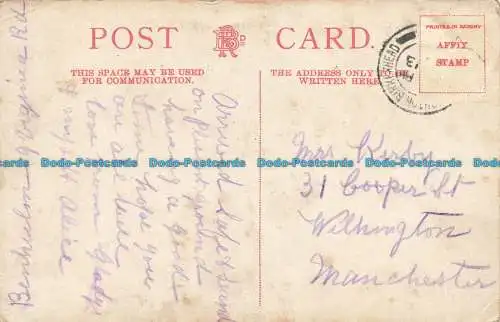 POST CARD.
THIS SPACE MAY BE USED
FOR COMMUNICATION.
THE ADDRESS ONLY TO BE
WRITTEN HERE.
PRINTED IN SAXONY
AFFIX
STAMP
BIRKENHEAD
Arrived safe & sound
on
having a good
time hope you
are all well
love from Gladys
& Alice
Virginia Rd
Mrs Kirby
31 Cooper St
Withington
Manchester
Postcards-DB.com Postcards-DB.com Postcards-DB.com Postcards-DB.com